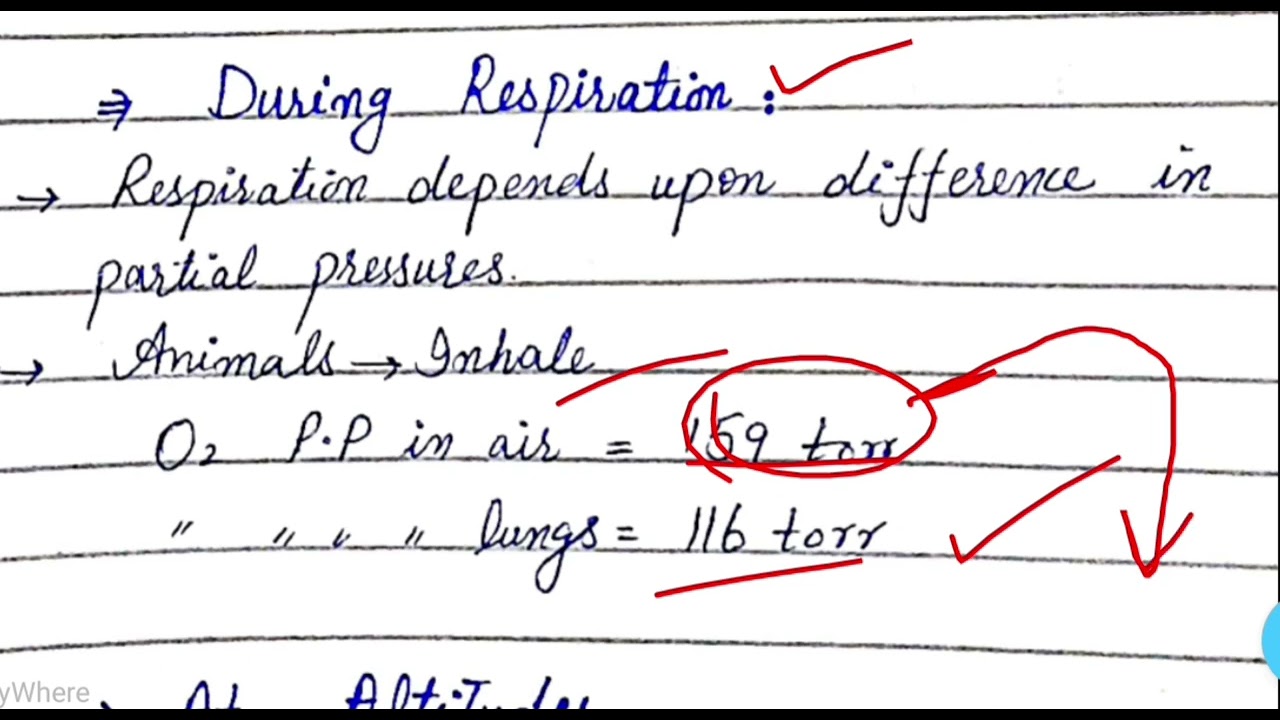 ⇒ During Respiration :
→ Respiration depends upon difference in
partial pressures.
→ Animals → Inhale
O₂ P.P in air = 159 torr
" " " " lungs = 116 torr
At Altitudes
yWhere